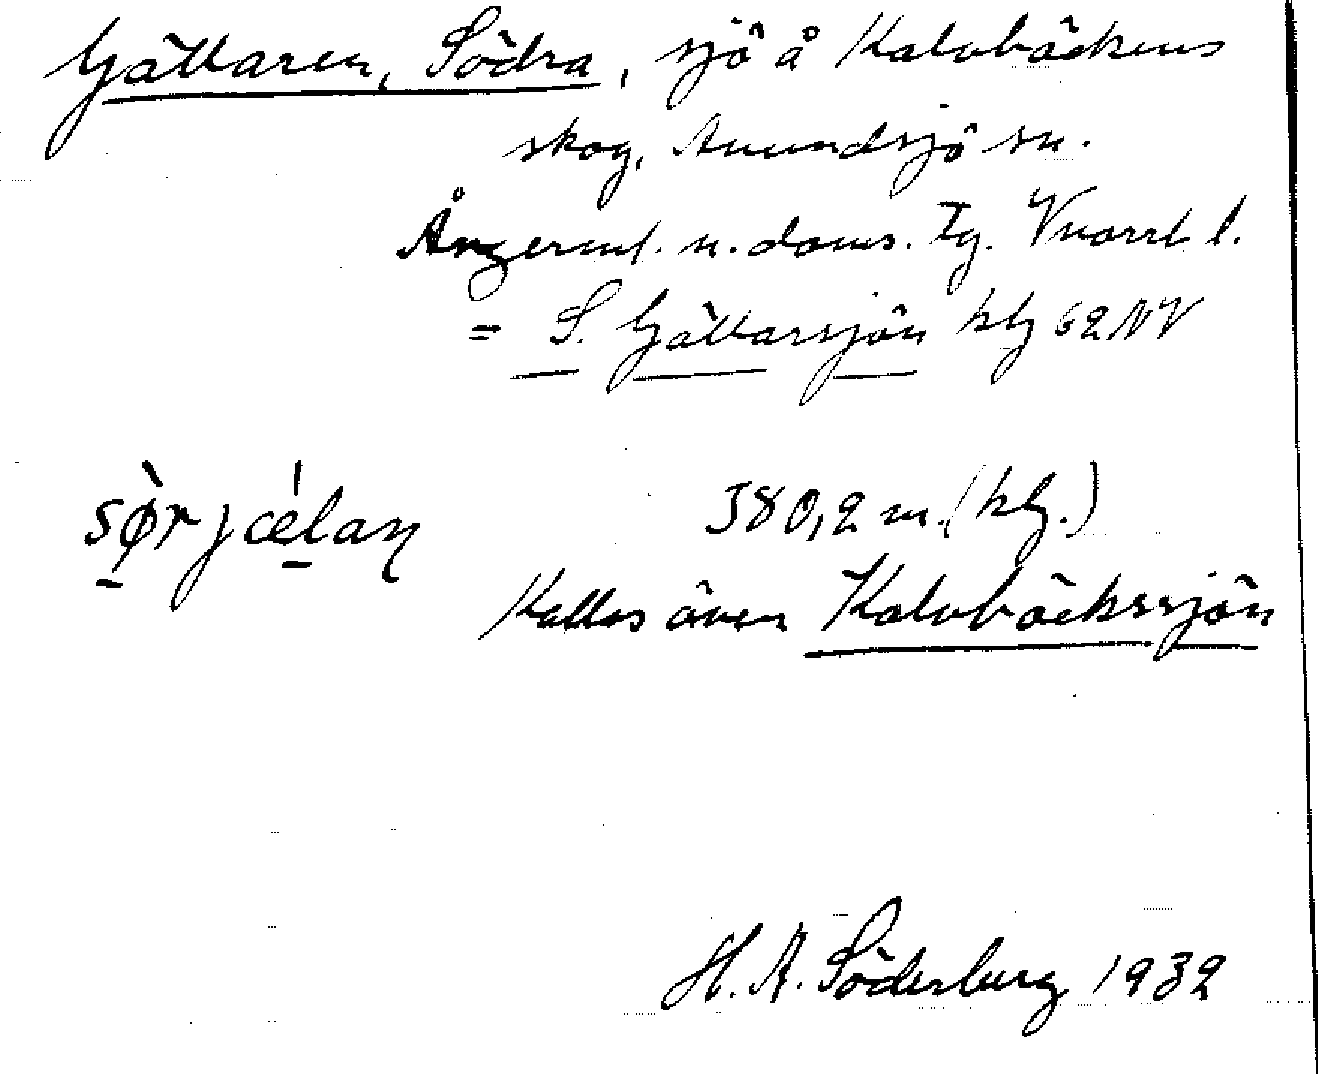 Gällaren, Södra, sjö å Kalvbäckens
skog, Anundsjö sn.
Ångerml. n. doms. Tg. Vnorrl. l.
= S. Gällarsjön kbl 62 NV
380,2 m. (kbl.)
Kallas även Kalvbäckssjön
H. A. Söderberg 1932